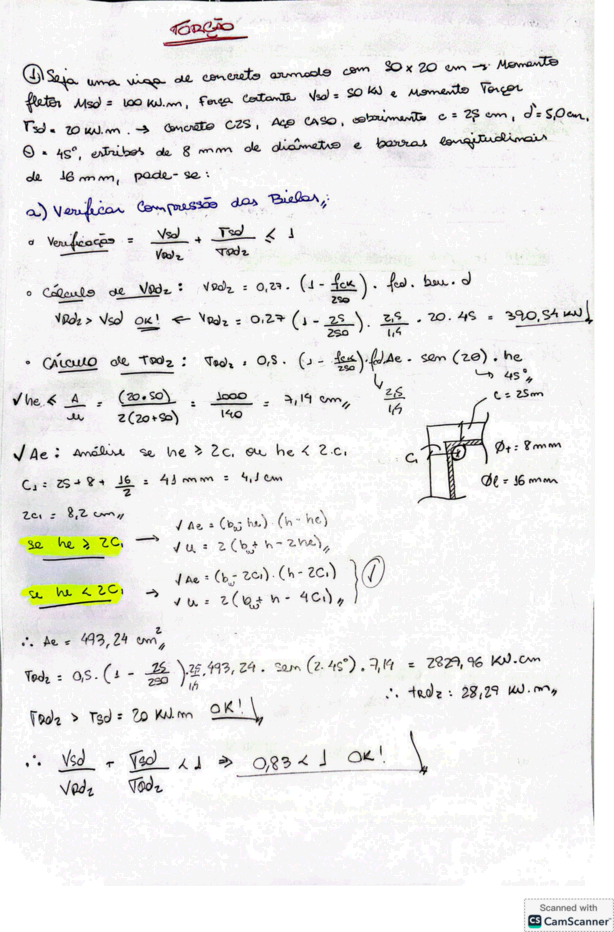 TORÇÃO
① Seja uma viga de concreto armado com 50 x 20 cm → Momento
fletor Msd = 100 kN.m, Força Cortante Vsd = 50 kN e Momento Torçor
Tsd = 20 kN.m. → Concreto C25, Aço CA50, cobrimento c = 25 cm, d' = 5,0cm,
θ = 45°, estribos de 8 mm de diâmetro e barras longitudinais
de 16 mm, pede-se:
a) Verificar Compressão das Bielas,,
• Verificação = Vsd/VRd2 + Tsd/TRd2 ≤ 1
• Cálculo de VRd2 : VRd2 = 0,27 . (1 - fck/250) . fcd . bw . d
VRd2 > Vsd OK! ← VRd2 = 0,27 (1 - 25/250) . 2,5/1,4 . 20 . 45 = 390,54 kN
• Cálculo de TRd2 : TRd2 = 0,5 . (1 - fck/250) . fcd Ae . sen (2θ) . he
→ 45°,,
2,5/1,4
✓ he ≤ A/u = (20.50)/2(20+50) = 1000/140 = 7,14 cm,,
c = 25m
C1
Øt = 8mm
Øl = 16mm
✓ Ae : Análise se he ≥ 2C1 ou he < 2.C1
C1 = 25 + 8 + 16/2 = 41 mm = 4,1 cm
2C1 = 8,2 cm,,
se he ≥ 2C1 → ✓ Ae = (bw - he) . (h - he)
✓ u = 2 (bw + h - 2he),,
se he < 2C1 → ✓ Ae = (bw - 2C1) . (h - 2C1)
✓ u = 2 (bw + h - 4C1),,
∴ Ae = 493,24 cm²,,
TRd2 = 0,5 . (1 - 25/250) . 2,5/1,4 . 493,24 . sen (2.45°) . 7,14 = 2829,96 kN.cm
∴ tRd2 : 28,29 kN.m,,
TRd2 > Tsd = 20 kN.m OK!
∴ Vsd/VRd2 + Tsd/TRd2 < 1 ⇒ 0,83 < 1 OK!
Scanned with
CS CamScanner